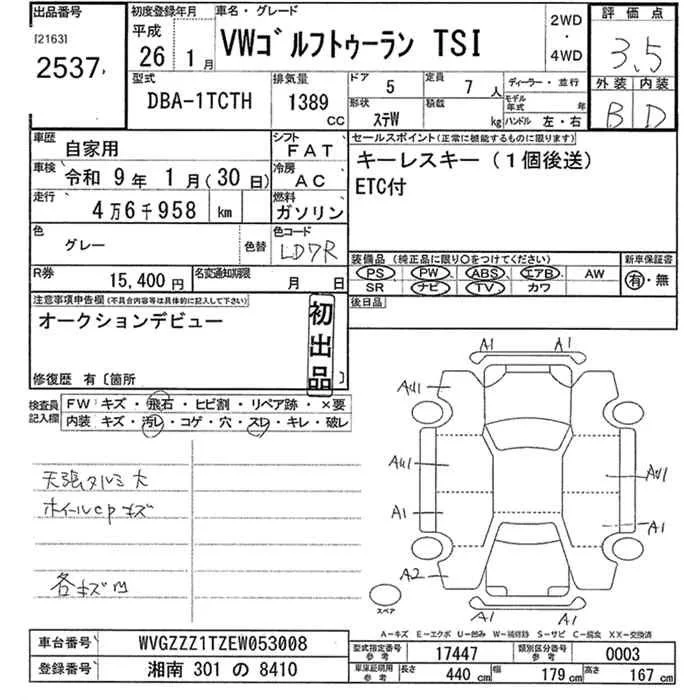 出品番号
[2163]
2537
初度登録年月
平成
26 1月
車名・グレード
VWゴルフトゥーラン TSI
2WD
・
4WD
評価点
3.5
外装 内装
B D
型式
DBA-1TCTH
排気量
1389 cc
ドア 5
定員 7人
形状 ステW
積載 kg
ディーラー・並行
モデル年式 年
ハンドル 左・右
車歴 自家用
シフト FAT
車検 令和 9年 1月(30日)
冷房 AC
走行 4万6千958 km
燃料 ガソリン
色 グレー 色替
色コード LD7R
R券 15,400円
名変通知期限 月 日
セールスポイント(正常に機能するものに限ります)
キーレスキー(1個後送)
ETC付
装備品(純正品に限り○をつけてください)
PS PW ABS エアB AW
SR ナビ TV カワ
新車保証書
有・無
後日品
注意事項申告欄(不具合内容等は具体的に記入して下さい)
オークションデビュー
初出品
修復歴 有〔箇所 〕
検査員記入欄
FW キズ・飛石・ヒビ割・リペア跡・×要
内装 キズ・汚レ・コゲ・穴・スレ・キレ・破レ
天張タルミ大
ホイールcpキズ
各キズ凹
A1 A1
AU1
AU1 AU1
A1 A1
A2
A1 A1
スペア
A-キズ E-エクボ U-凹み W-補修跡 S-サビ C-腐食 XX-交換済
車台番号 WVGZZZ1TZEW053008
登録番号 湘南 301 の 8410
型式指定番号 参考 17447
類別区分番号 参考 0003
車庫証明用 参考 長さ 440 cm 幅 179 cm 高さ 167 cm